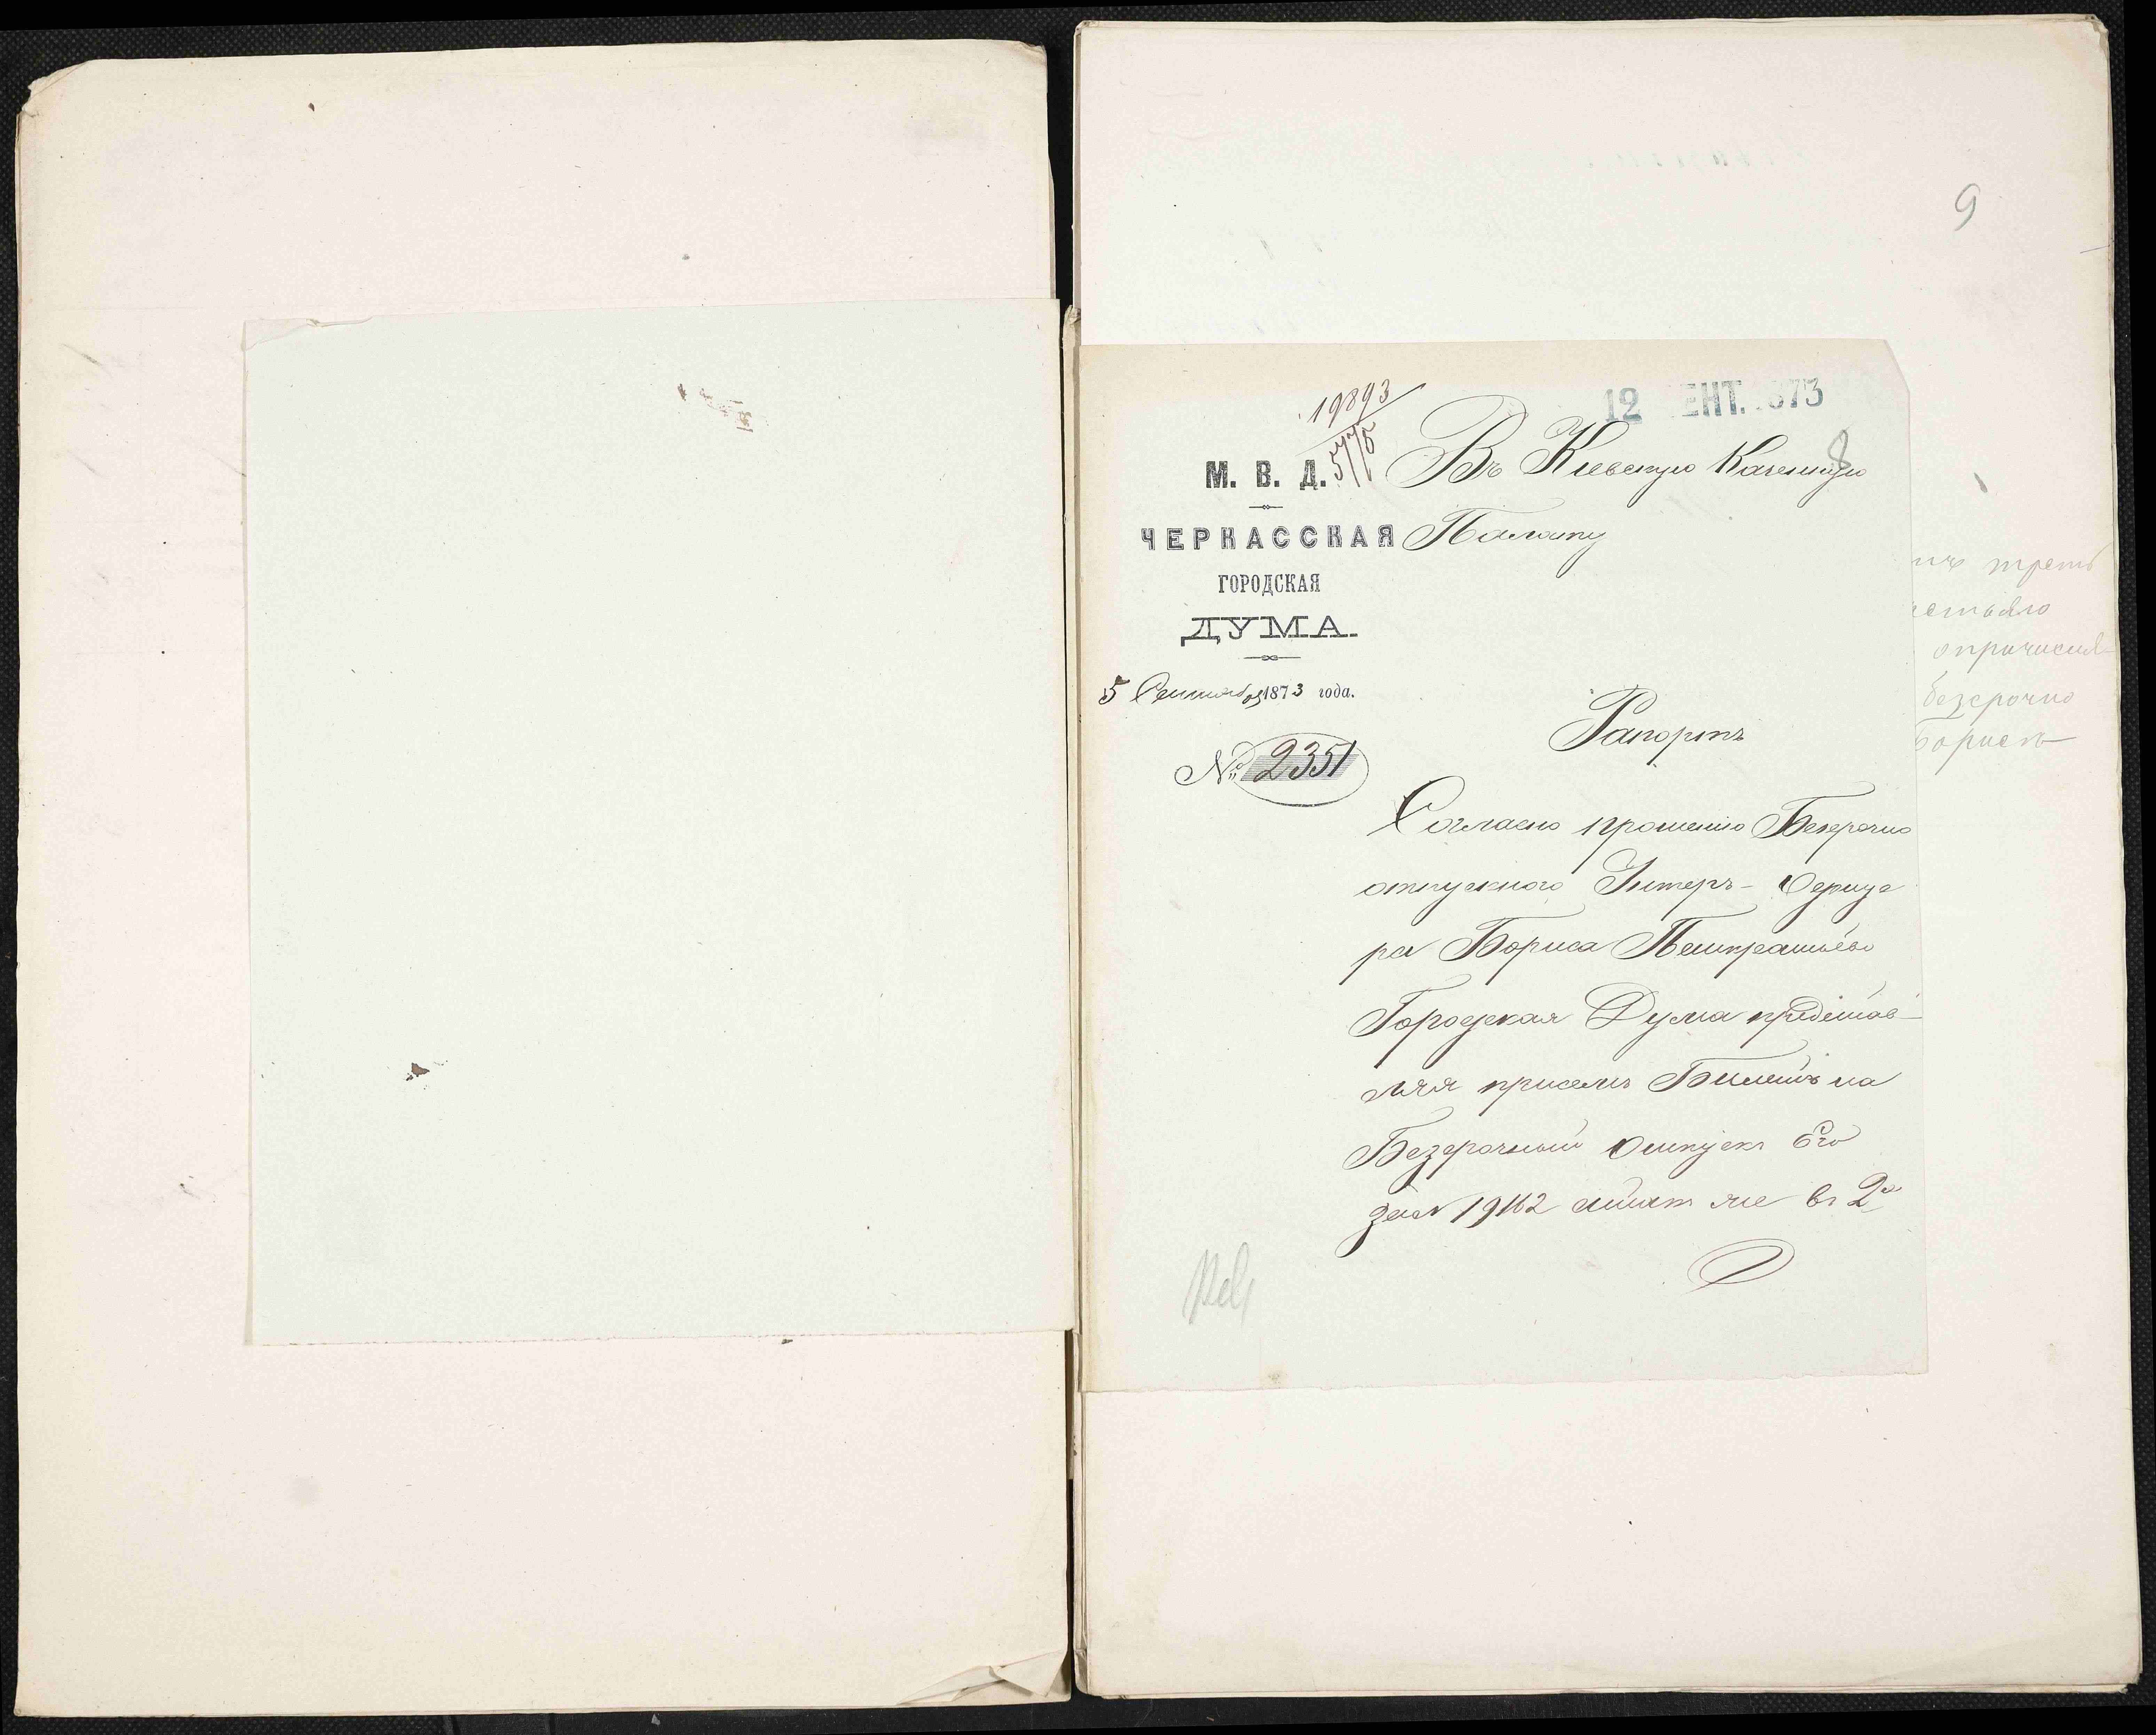 9
12 ЕНТ. 873
19893
5775
8
М. В. Д.
ЧЕРКАССКАЯ
ГОРОДСКАЯ
ДУМА.
5 Сентября 1873 года.
№ 2351
Въ Кіевскую Казенную
Палату
Рапортъ
Согласно прошенію Безсрочно
отпускного Унтеръ-Офице
ра Бориса
Городская Дума представ-
ляя присемъ Билетъ на
Безсрочный Отпускъ Его
за № 19162 въ 2й
треть
опричисл-
безсрочно
Борисъ